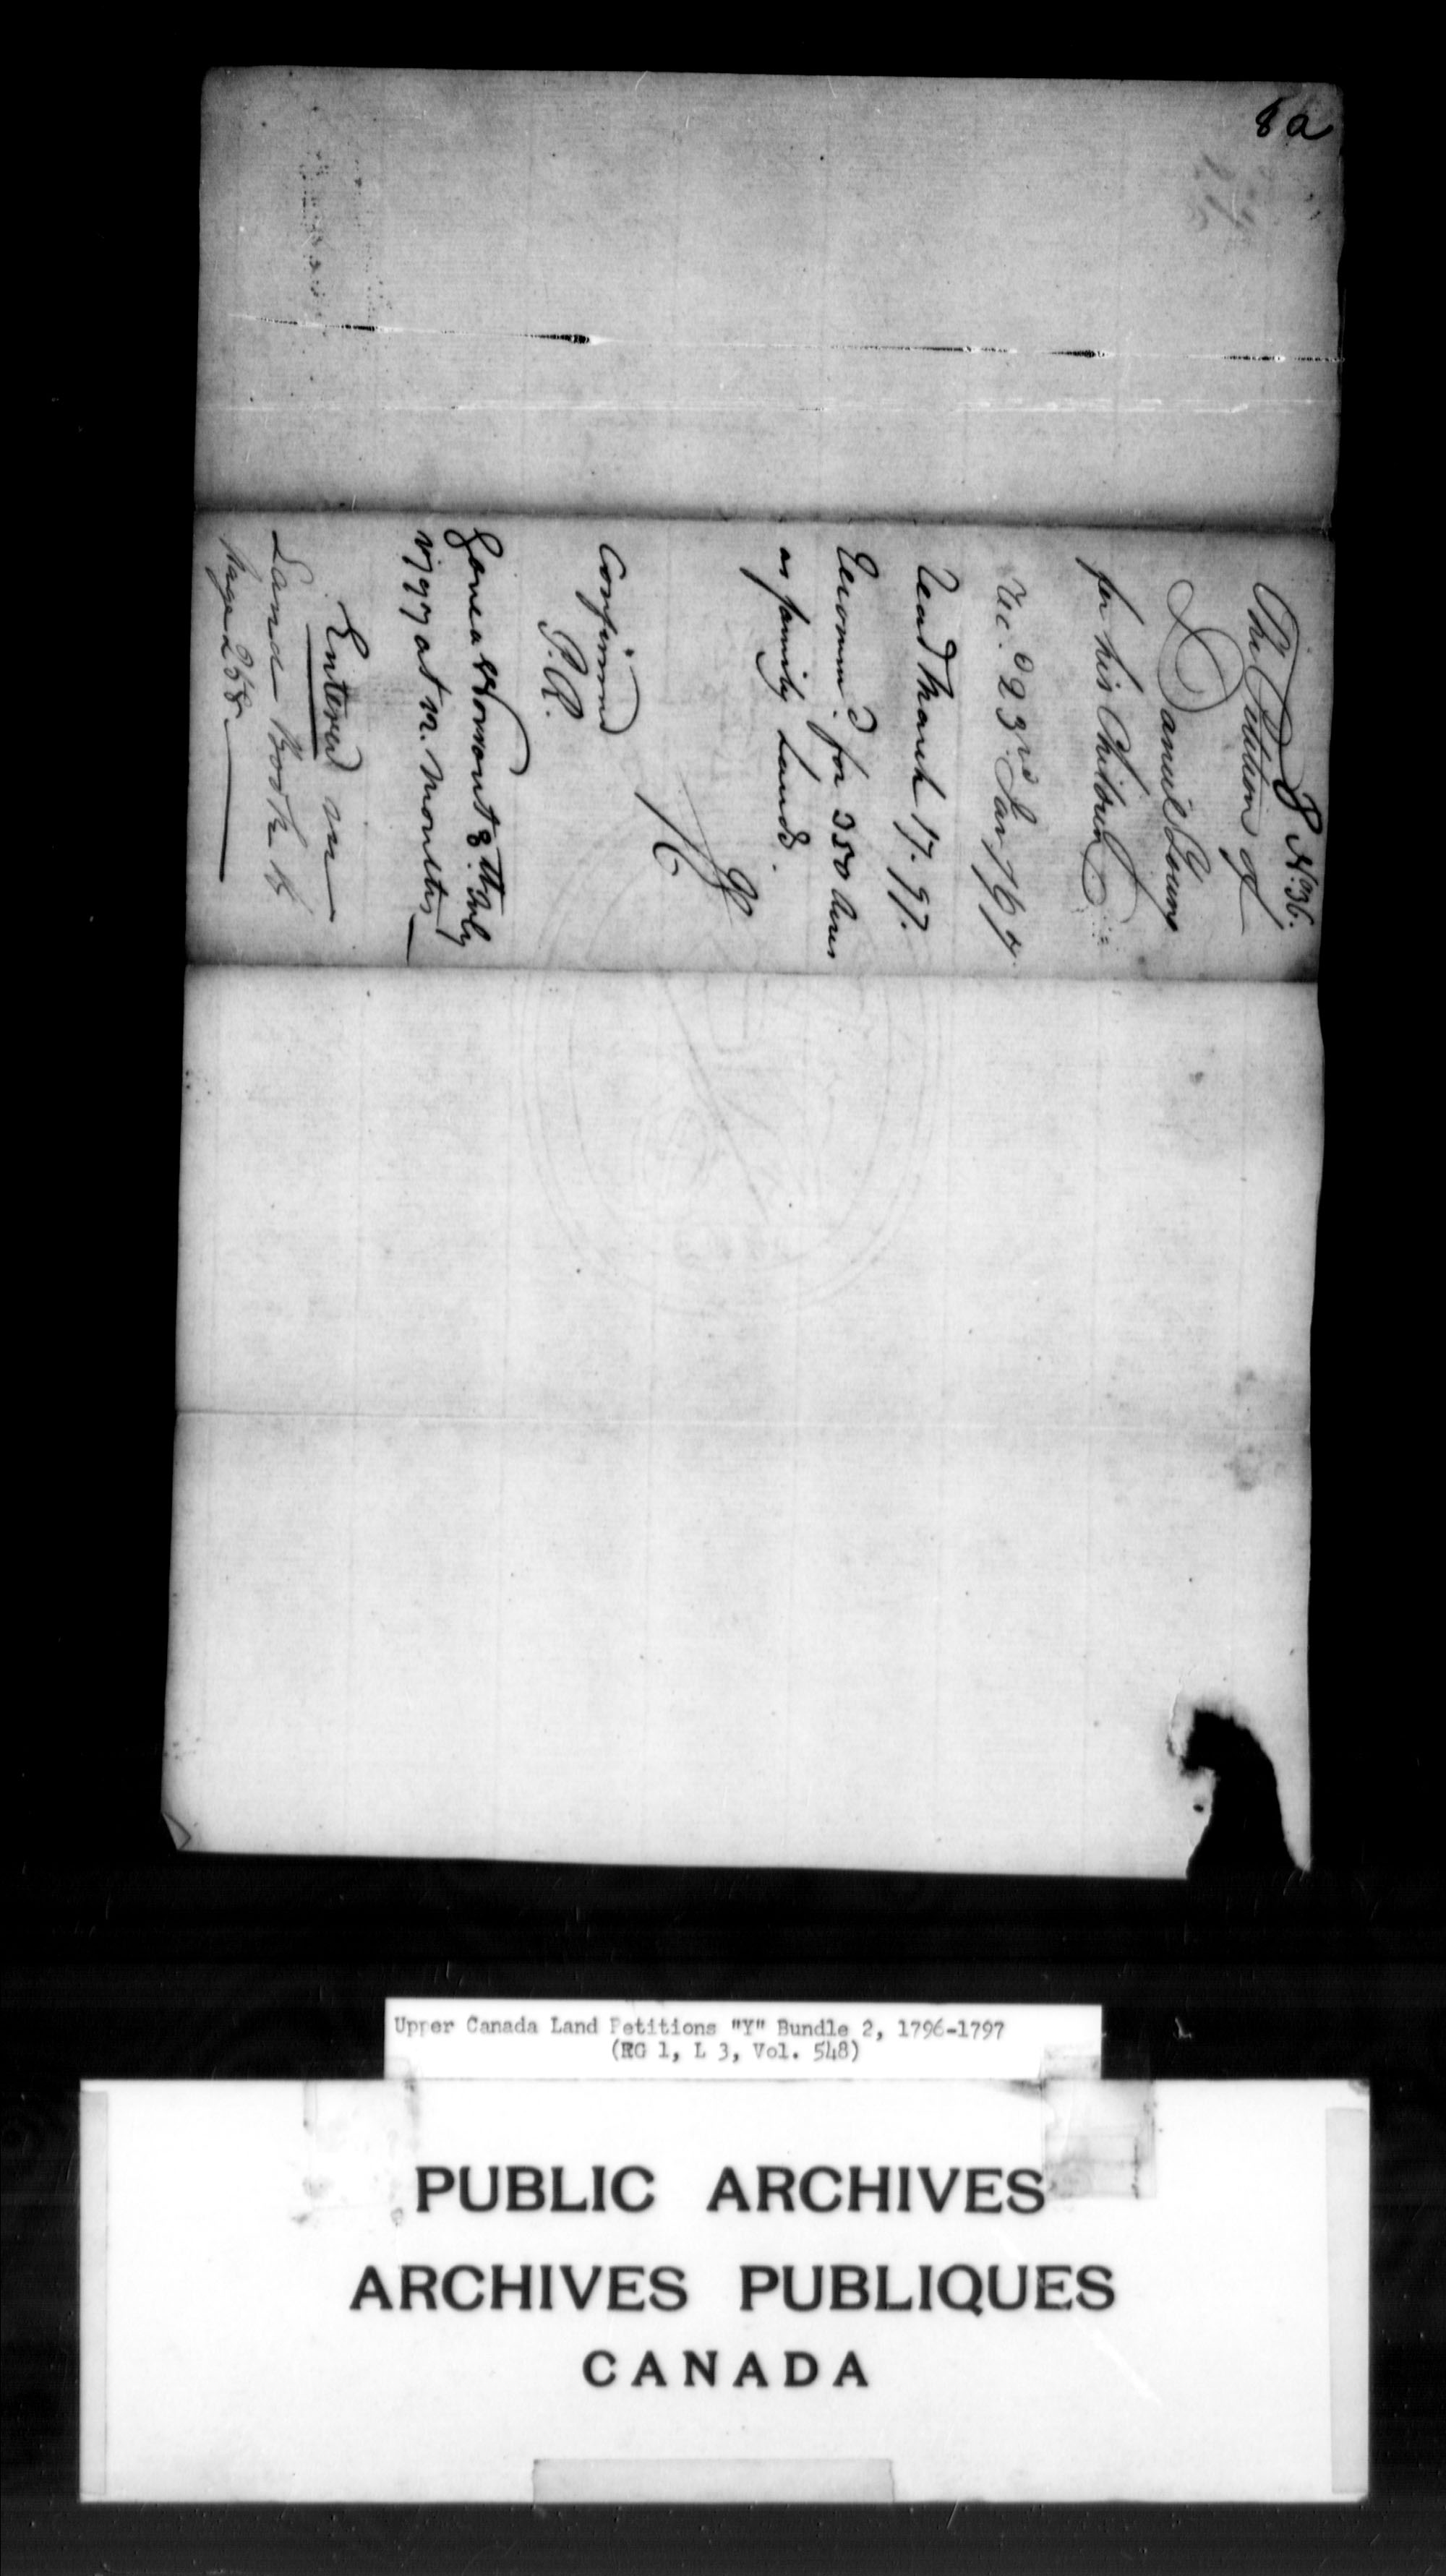 8a
8 No 36.
The Petition of
Daniel Young
for his Children
Rec.d 23rd Jan 1797
Read March 17. 97.
Recomm.d for 350 Acres
as family Lands.
Confirmed
P.R.
8th July
1797 at 12. Months
Entered in
Land Book B
page 258.
Upper Canada Land Petitions "Y" Bundle 2, 1796-1797
(RG 1, L 3, Vol. 548)
PUBLIC ARCHIVES
ARCHIVES PUBLIQUES
CANADA